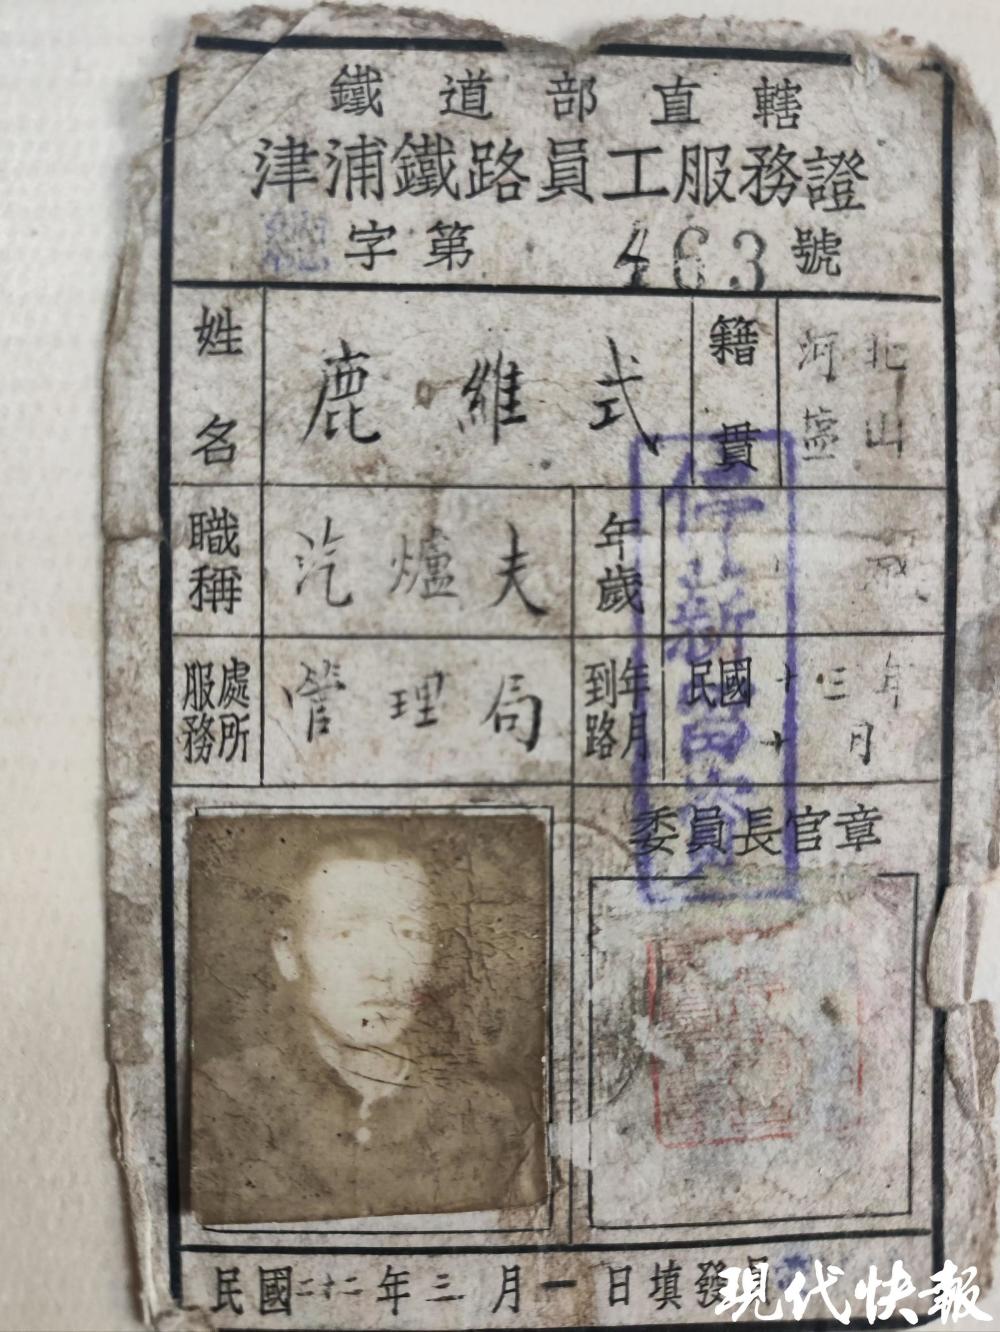 鐵道部直轄
津浦鐵路員工服務證
字第463號
姓名 鹿維式 籍貫 河北
鹽山
職稱 汽爐夫 年歲
服務處所 管理局 到路年月 民國十三年
十月
停薪留資
委員長官章
民國二十二年三月一日填發
現代快報